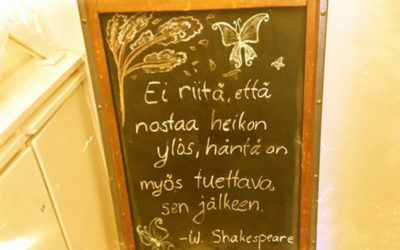 Ei riitä, että
nostaa heikon
ylös, häntä on
myös tuettava
sen jälkeen.
-W. Shakespeare